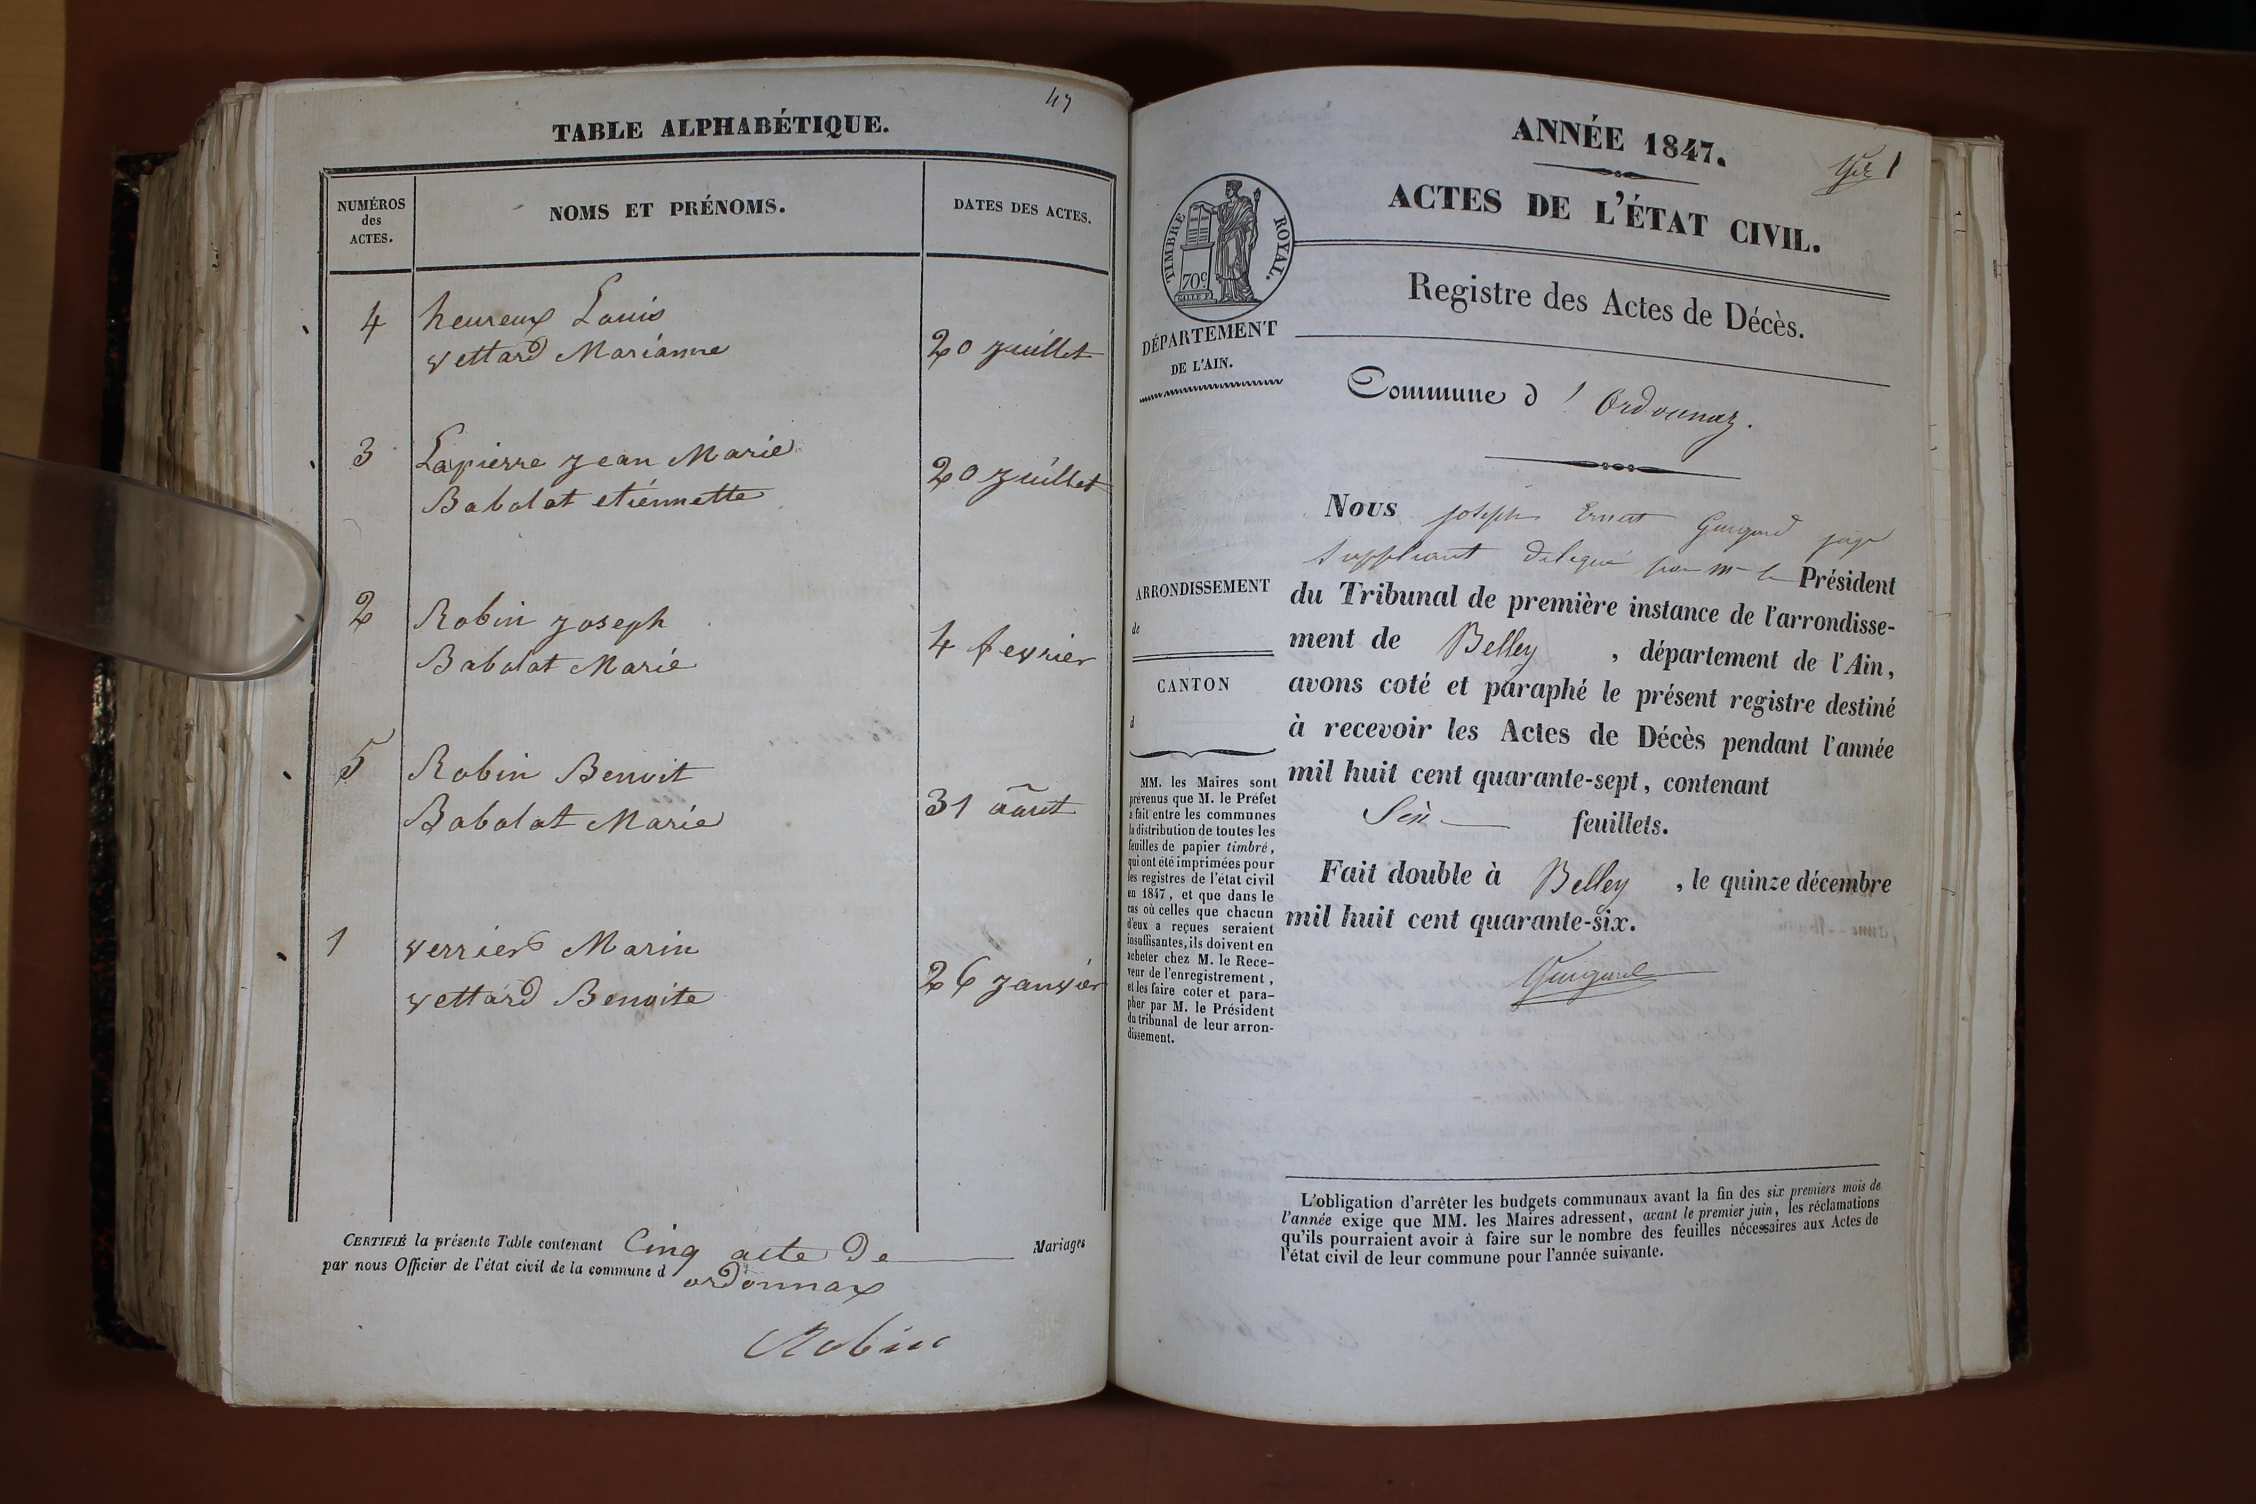 47
TABLE ALPHABÉTIQUE.
NUMÉROS
des
ACTES.
NOMS ET PRÉNOMS.
DATES DES ACTES.
4 heureux Louis
vettard Marianne 20 juillet
3 Lapierre jean Marie
Babolat etiennette 20 juillet
2 Robin joseph
Babolat Marie 4 fevrier
5 Robin Benoit
Babolat Marie 31 août
1 verrier Marin
vettard Benoite 26 janvier
CERTIFIÉ la présente Table contenant Cinq acte De Mariages
par nous Officier de l'état civil de la commune d ordonnax
Robin
ANNÉE 1847.
1
ACTES DE L'ÉTAT CIVIL.
TIMBRE ROYAL.
70c
Registre des Actes de Décès.
DÉPARTEMENT
DE L'AIN.
Commune d' Ordonnaz.
Nous joseph Ernest Guigard juge
suppléant délégué par Mr le Président
du Tribunal de première instance de l'arrondisse-
ment de Belley, département de l'Ain,
avons coté et paraphé le présent registre destiné
à recevoir les Actes de Décès pendant l'année
mil huit cent quarante-sept, contenant
Six feuillets.
Fait double à Belley, le quinze décembre
mil huit cent quarante-six.
Guigard
ARRONDISSEMENT
de
CANTON
d
MM. les Maires sont
prévenus que M. le Préfet
a fait entre les communes
la distribution de toutes les
feuilles de papier timbré,
qui ont été imprimées pour
les registres de l'état civil
en 1847, et que dans le
cas où celles que chacun
d'eux a reçues seraient
insuffisantes, ils doivent en
acheter chez M. le Rece-
veur de l'enregistrement,
et les faire coter et para-
pher par M. le Président
du tribunal de leur arron-
dissement.
L'obligation d'arrêter les budgets communaux avant la fin des six premiers mois de
l'année exige que MM. les Maires adressent, avant le premier juin, les réclamations
qu'ils pourraient avoir à faire sur le nombre des feuilles nécessaires aux Actes de
l'état civil de leur commune pour l'année suivante.